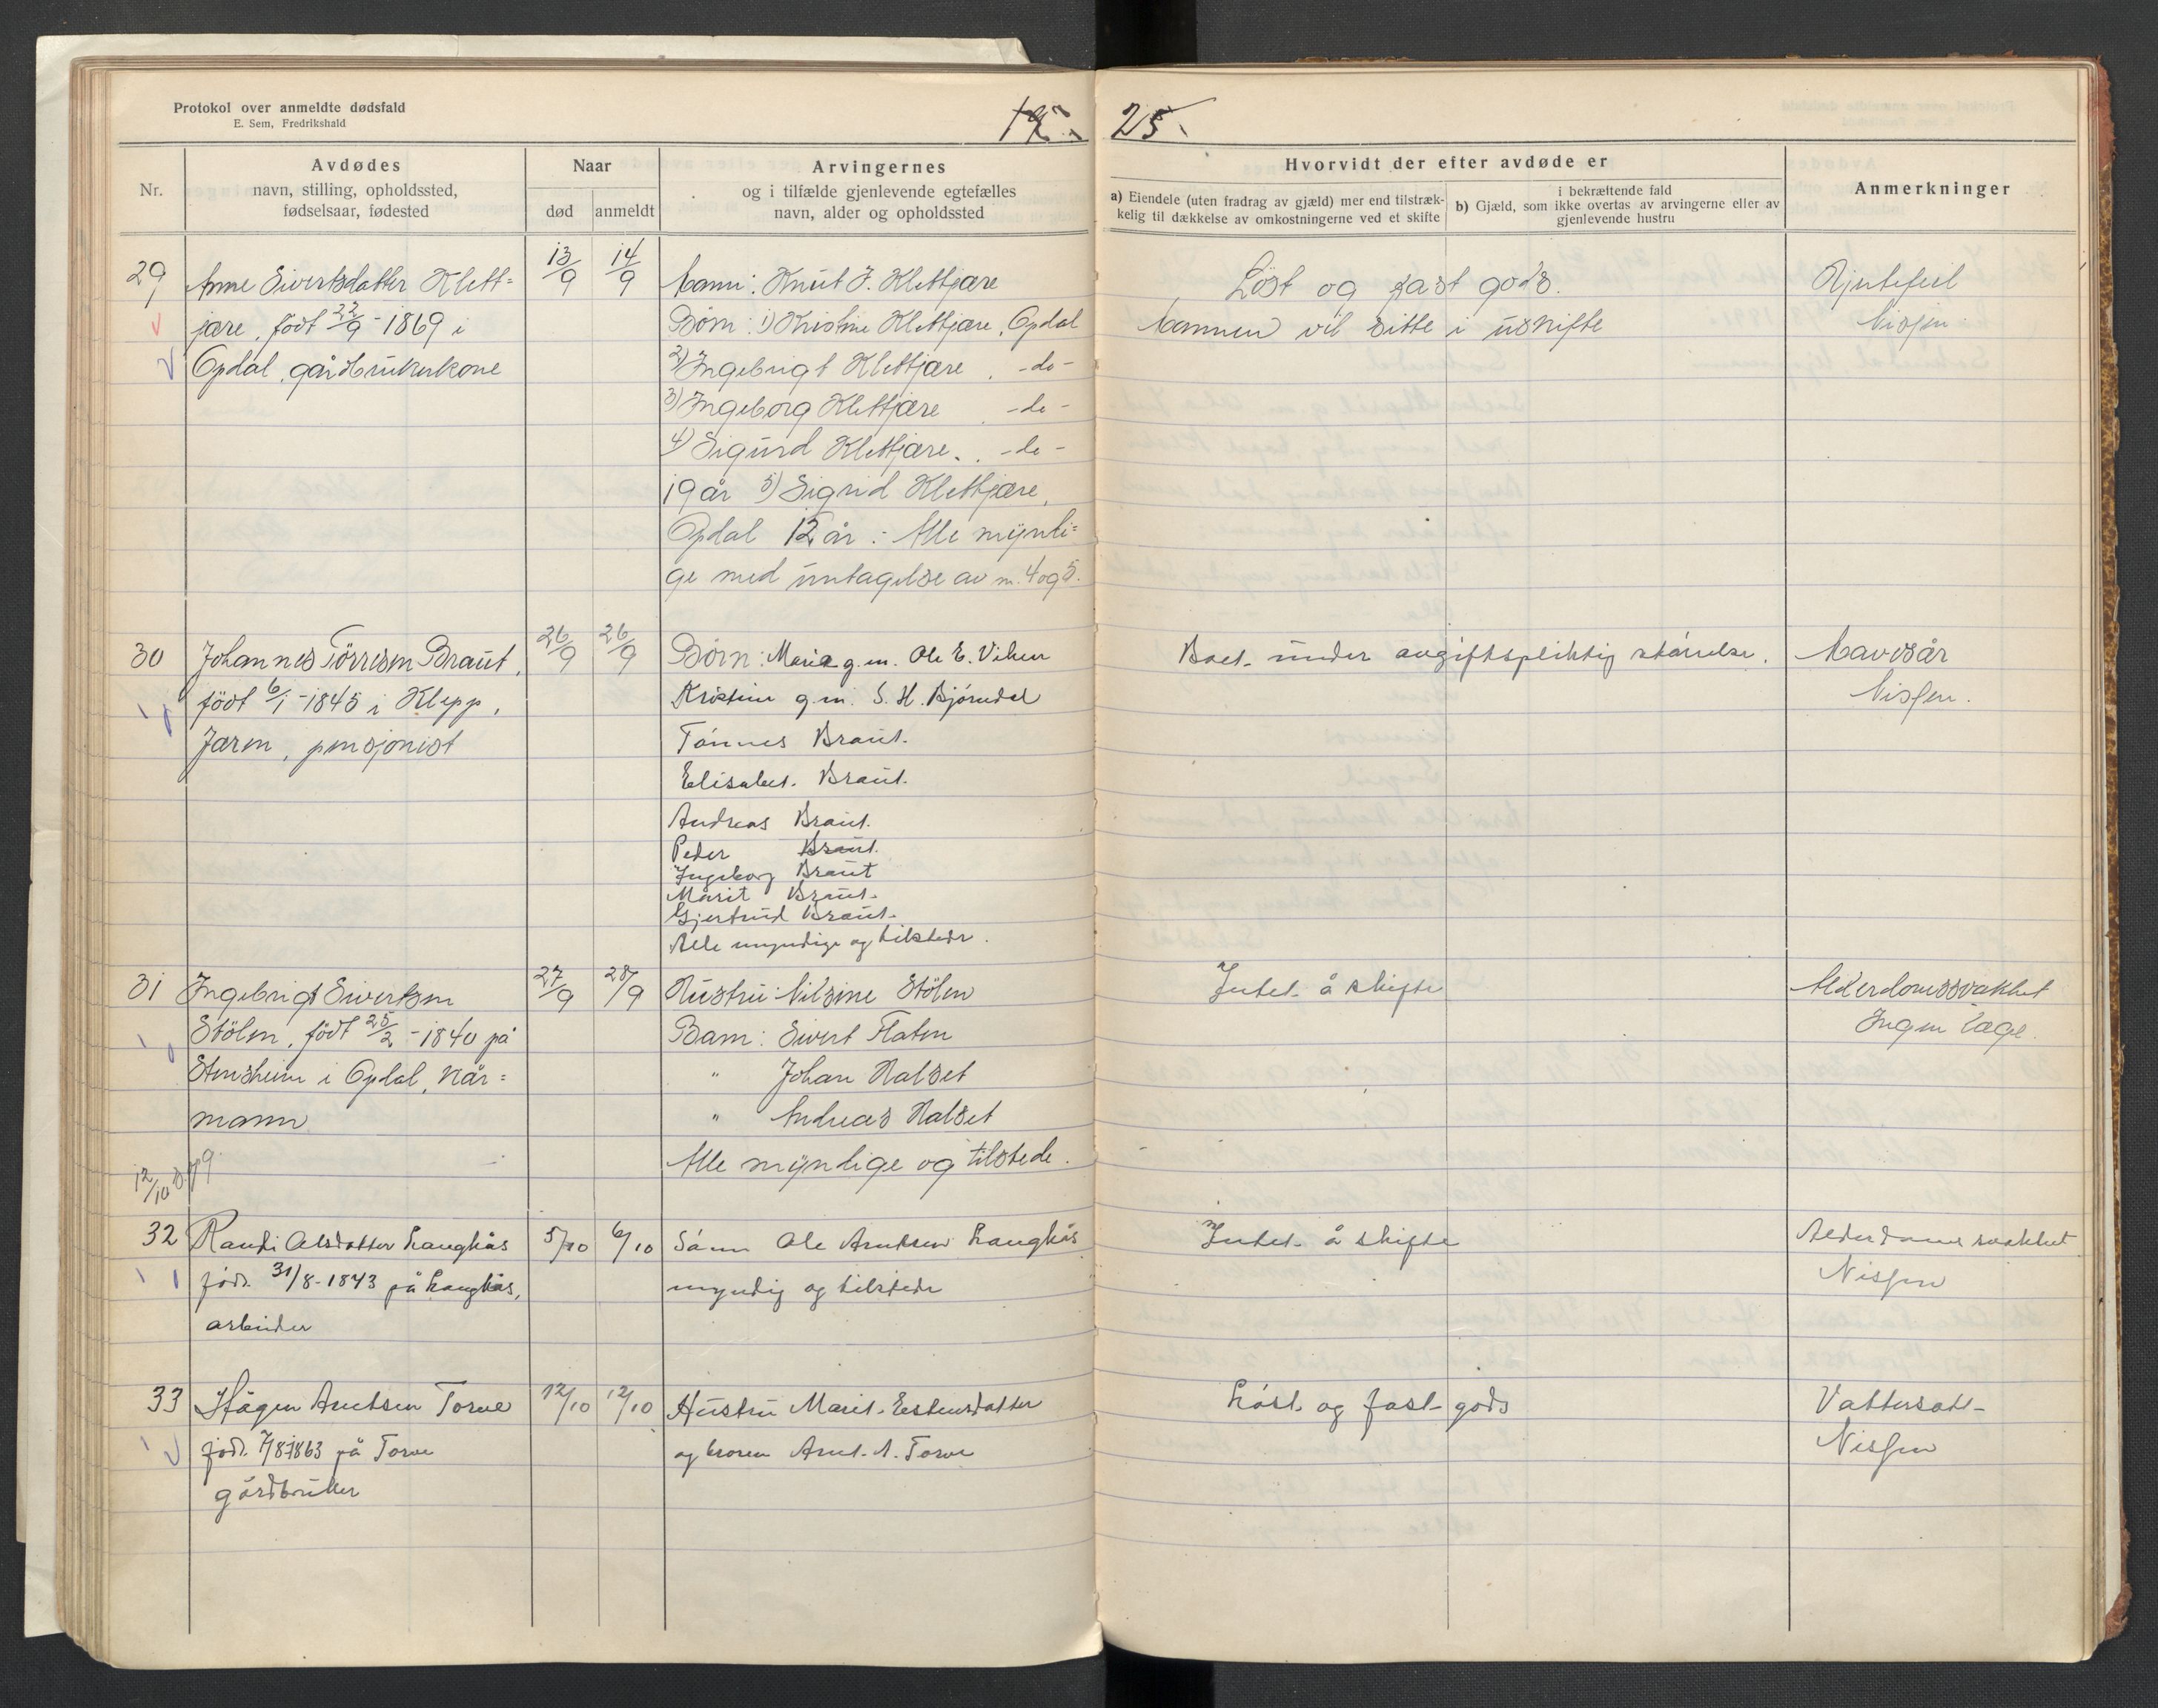 Protokol over anmeldte dødsfald
E. Sem, Fredrikshald
19 25.
Nr.
Avdødes
navn, stilling, opholdssted,
fødselsaar, fødested
Naar
død
anmeldt
Arvingernes
og i tilfælde gjenlevende egtefælles
navn, alder og opholdssted
Hvorvidt der efter avdøde er
a) Eiendele (uten fradrag av gjæld) mer end tilstræk-
kelig til dækkelse av omkostningerne ved et skifte
i bekræftende fald
b) Gjæld, som ikke overtas av arvingerne eller av
gjenlevende hustru
Anmerkninger
29
Anne Sivertsdatter Klett=
jære, født 22/9 - 1869 i
Opdal, gårdbrukerkone
13/9
14/9
Mann: Knut J. Klettjære
Børn: 1) Kristine Klettjære, Opdal
2) Ingebrigt Klettjære, -do-
3) Ingeborg Klettjære -do-
4) Sigurd Klettjære. -do-
19 år 5) Sigrid Klettjære,
Opdal 12 år: Alle mynti=
ge med undtagelse av nr. 4 og 5.
Löst og fast gods.
Mannen vil sitte i uskifte
Hjertefeil
Nissen
30
Johannes Törresen Braut,
født 6/1 - 1845 i Klepp,
Jæren, pensjonist
26/9
26/9
Børn: Maria g.m. Ole E. Viken
Kristine g.m. S. H. Bjørndal
Tønnes Braut.
Elisabet. Braut.
Andreas Braut.
Peder Braut.
Ingeborg Braut
Marit Braut.
Gjertrud Braut.
Alle myndige og tilstede.
Boet under avgiftspliktig størrelse.
Mavesår
Nissen.
31
Ingebrigt Sivertsen
Stölen, født 25/2 - 1840 på
Stensheim i Opdal, kår=
mann
27/9
28/9
Hustru: Nilsine Stölen
Barn: Sivert Flaten
" Johan Halset
" Andreas Halset
Alle myndige og tilstede.
Intet å skifte
Alderdomssvakhet
Ingen læge.
12/10
32
Randi Olsdatter Langhås
født. 31/8 - 1843 på Langhås,
arbeider
5/10
6/10
Sønn Ole Arntsen Langhås
myndig og tilstede
Intet å skifte
Alderdomssvakhet
Nissen
33
Hågen Arntsen Torve
født. 7/8 1863 på Torve
gårdbruker
12/10
12/10
Hustru Marit Estensdatter
og broren Arnt A. Torve
Løst og fast gods
Vattersott
Nissen